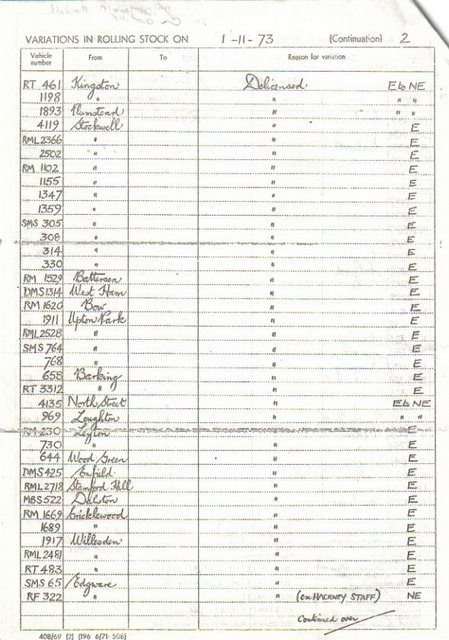 VARIATIONS IN ROLLING STOCK ON 1-11-73 (Continuation) 2
Vehicle number From To Reason for variation
RT 461 Kingston Delicensed E to NE
1198 " " " "
1893 Plumstead " " "
4119 Stockwell " E
RML 2366 " " E
2502 " " E
RM 1102 " " E
1155 " " E
1347 " " E
1359 " " E
SMS 305 " " E
308 " " E
314 " " E
330 " " E
RM 1529 Battersea " E
DMS 1314 West Ham " E
RM 1620 Bow " E
1911 Upton Park " E
RML 2528 " " E
SMS 764 " " E
768 " " E
658 Barking " E
RT 3312 " " E
4135 North Street " E to NE
969 Loughton " " "
RM 230 Leyton " E
730 " " E
644 Wood Green " E
DMS 425 Enfield " E
RML 2718 Stamford Hill " E
MBS 522 Dalston " E
RM 1669 Cricklewood " E
1689 " " E
1917 Willesden " E
RML 2481 " " E
RT 483 " " E
SMS 65 Edgware " E
RF 322 " " (ex HACKNEY STAFF) NE
Continued over
408/69 (2) (196 6/71 506)